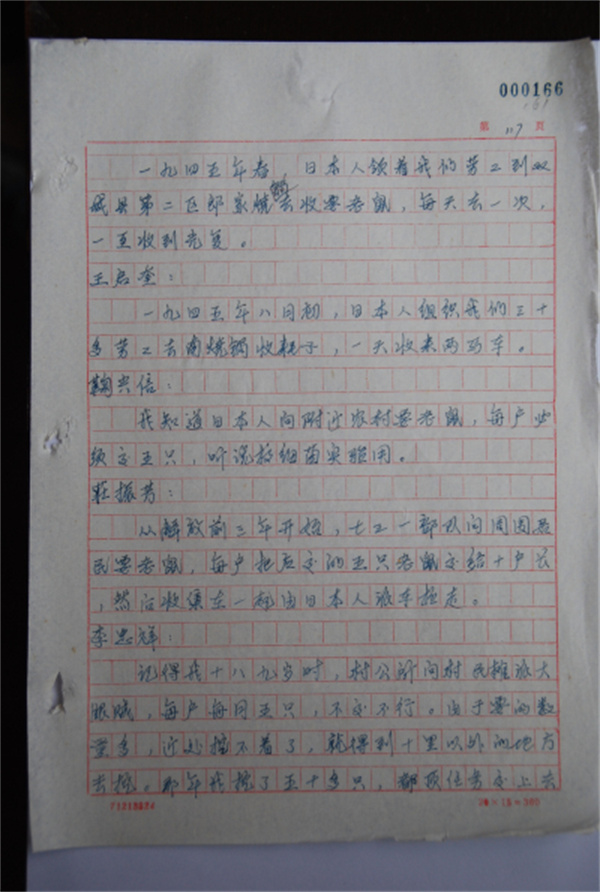 000166
161
第 117 页
一九四五年春，日本人领着我们劳工到双
城县第二区郎家烧锅去收要老鼠，每天去一次，
一直收到光复。
王启奎：
一九四五年八月初，日本人组织我们三十
多劳工去南烧锅收耗子，一天收来两马车。
鞠兴信：
我知道日本人向附近农村要老鼠，每户必
须交五只，听说搞细菌实验用。
莊振芳：
从解放前三年开始，七三一部队向周围居
民要老鼠，每户把应交的五只老鼠交给十户长
，然后收集在一起由日本人派车拉走。
李忠祥：
记得我十八九岁时，村公所向村民摊派大
眼贼，每户每月五只，不交不行。由于要的数
量多，近处挖不着了，就得到十里以外的地方
去挖。那年我挖了五十多只，都顶任务交上去
20×15=300